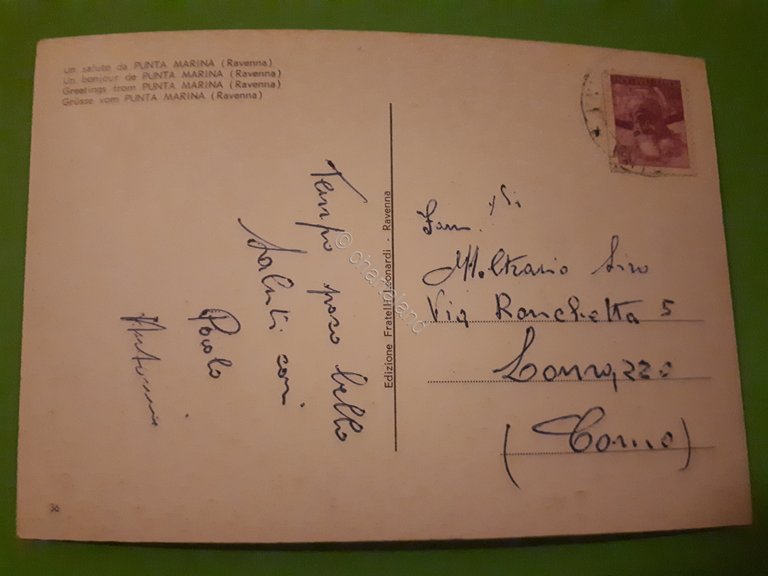 un saluto da PUNTA MARINA (Ravenna)
Un bonjour de PUNTA MARINA (Ravenna)
Greetings from PUNTA MARINA (Ravenna)
Grüsse vom PUNTA MARINA (Ravenna)
Tempo poco bello
Saluti cari
Paolo
Antonia
Edizione Fratelli Leonardi - Ravenna
Fam.
Moltrasio Siro
Via Ronchetta 5
(Como)
36
© charmiand